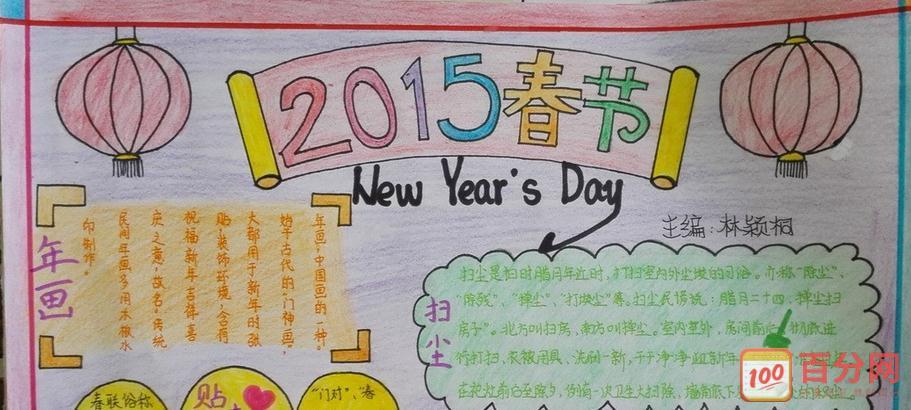 2015春节
New Year's Day
主编:林颖桐
年画
年画,中国画的一种。
始于古代的"门神画",
大都用于新年时张
贴,装饰环境,含有
祝福新年吉祥喜
庆之意,故名。传统
民间年画多用木板水
印制作。
扫尘
扫尘是扫时腊月年近时,打扫室内外尘垢的习俗。亦称"除尘"、
"除残"、"掸尘"、"打埃尘"等。扫尘民谚说:腊月二十四,掸尘扫
房子"。北方叫扫房,南方叫掸尘。室内室外,房间
行打扫,衣被用具、洗刷一新,干干净净迎新年
在祀灶前后至除夕,例有一次卫生大扫除,
春联俗称
贴
"门对"、春
100
百分网